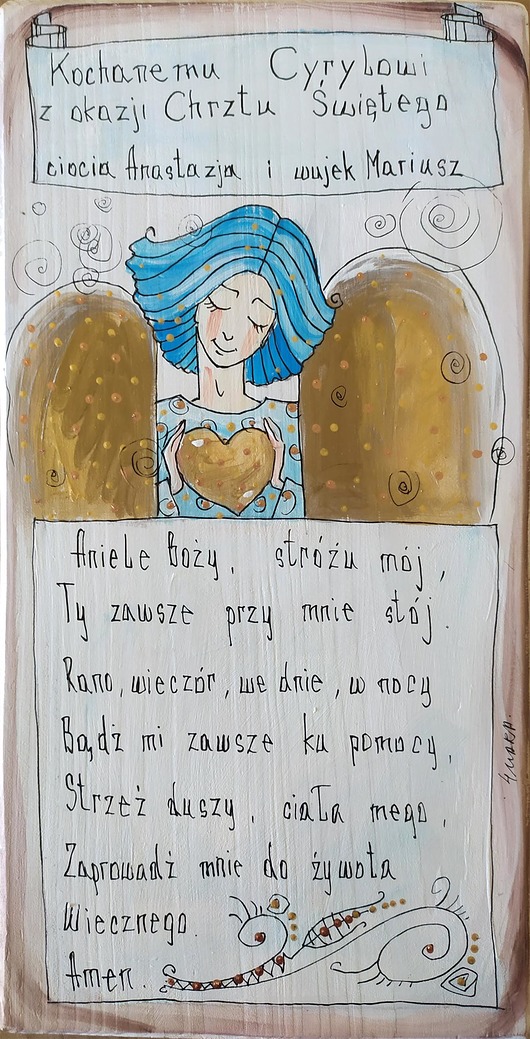 Kochanemu Cyrylowi
z okazji Chrztu Świętego
ciocia Anastazja i wujek Mariusz
Aniele Boży, stróżu mój,
Ty zawsze przy mnie stój.
Rano, wieczór, we dnie, w nocy
Bądź mi zawsze ku pomocy,
Strzeż duszy, ciała mego,
Zaprowadź mnie do żywota
Wiecznego.
Amen.